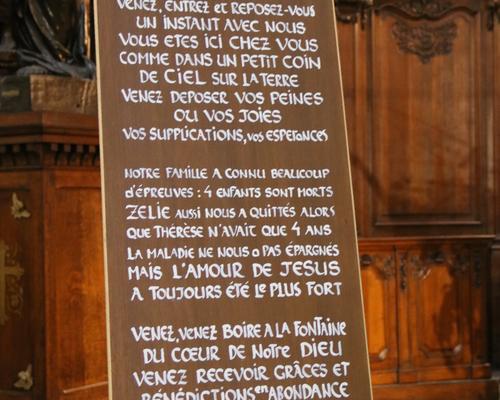 VENEZ, ENTREZ et REPOSEZ-VOUS
UN INSTANT AVEC NOUS
VOUS ETES ICI CHEZ VOUS
COMME DANS UN PETIT COIN
DE CIEL SUR LA TERRE
VENEZ DEPOSER VOS PEINES
OU VOS JOIES
VOS SUPPLICATIONS, vos ESPERANCES
NOTRE FAMILLE A CONNU BEAUCOUP
d'ÉPREUVES : 4 ENFANTS SONT MORTS
ZELIE AUSSI NOUS A QUITTÉS ALORS
QUE THÉRÈSE N'AVAIT QUE 4 ANS
LA MALADIE NE NOUS a PAS ÉPARGNÉS
MAIS L'AMOUR DE JESUS
A TOUJOURS ÉTÉ LE PLUS FORT
VENEZ, VENEZ BOIRE A LA FONTAINE
DU CŒUR DE NOTRE DIEU
VENEZ RECEVOIR GRÂCES ET
BÉNÉDICTIONS en ABONDANCE